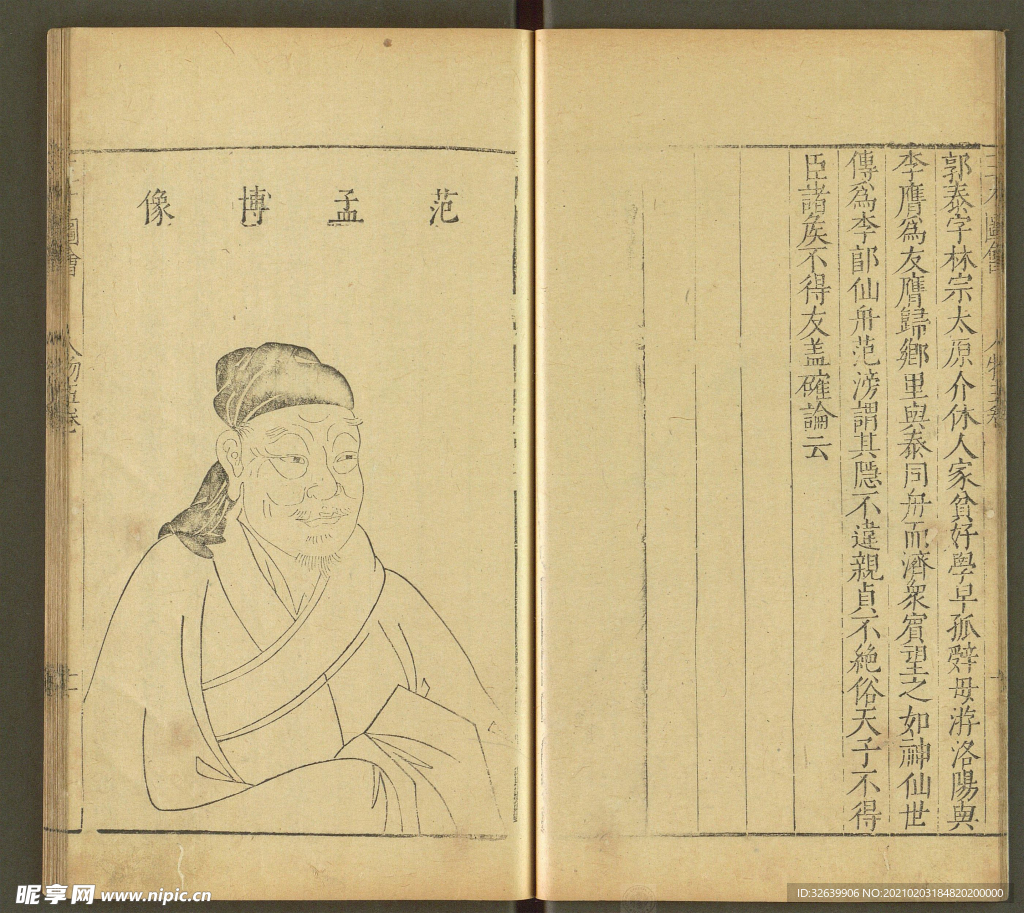 三才圖會 人物五卷
郭泰字林宗太原介休人家貧好學早孤辭母游洛陽與
李膺爲友膺歸鄉里與泰同舟而濟衆賓望之如神仙世
傳爲李郭仙舟范滂謂其隱不違親貞不絶俗天子不得
臣諸矦不得友盖確論云
范孟博像
圖會 人物五卷
昵享网 www.nipic.cn
ID:32639906 NO:20210203184820200000